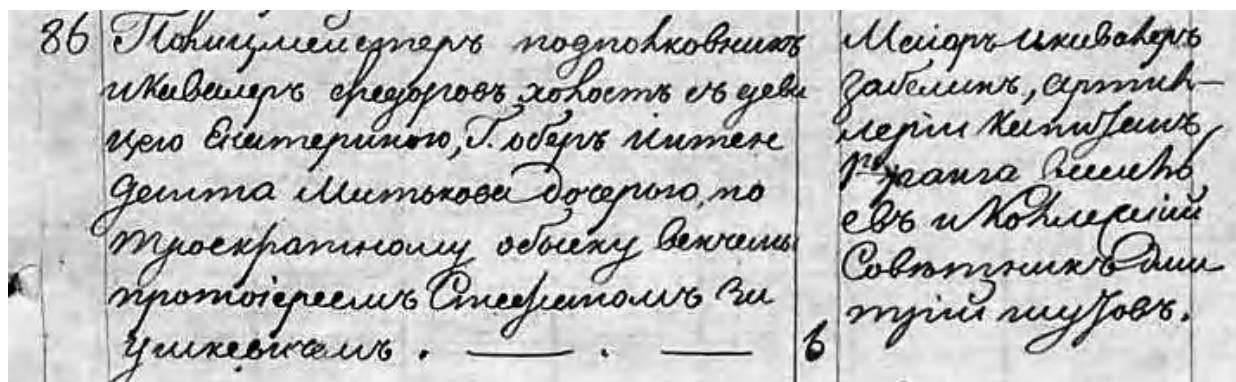 86 Полицмейстеръ подполковникъ
и Кавалеръ Федоровъ, холостъ съ деви
цею Екатериною, Г. оберъ интен
дента Митькова дочерью, по
троекратному обыску венчаны
протоіереемъ Стефаномъ Зи
ушкевичемъ. — . — 6
Маіоръ и кавалеръ
Забелинъ, артил–
леріи Капитанъ
1го ранга
евъ и Коллежскій
Советникъ Дми
трій шузовъ.